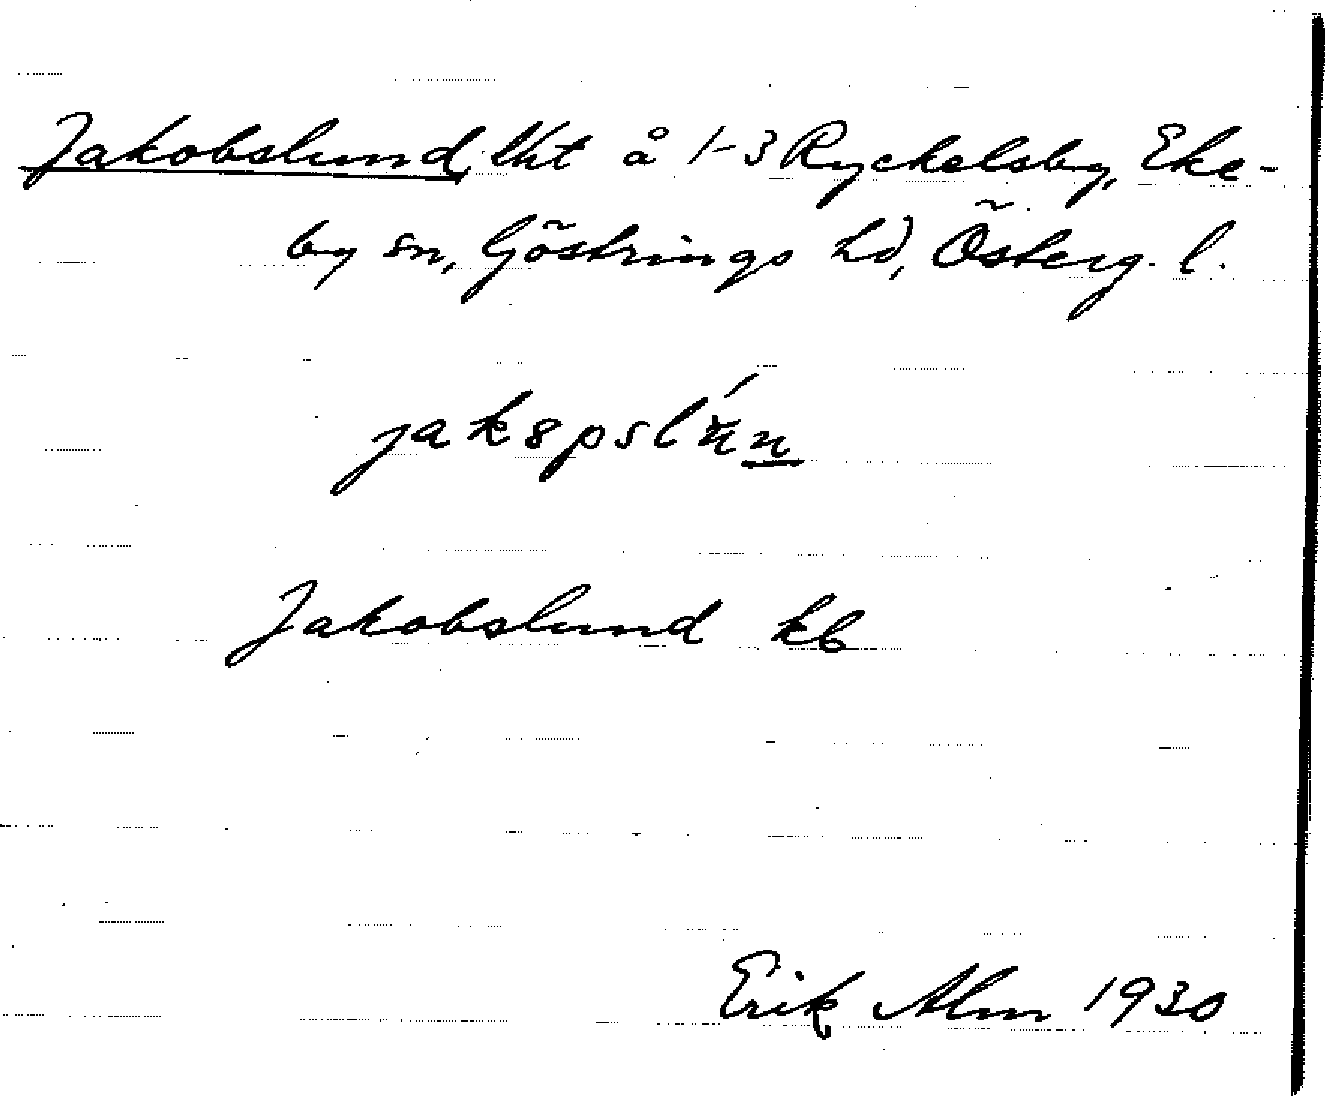 Jakobslund, lht å 1-3 Ryckelsby, Eke-
by sn, Göstrings hd, Österg. l.
Jakobslund kb
Erik Alm 1930